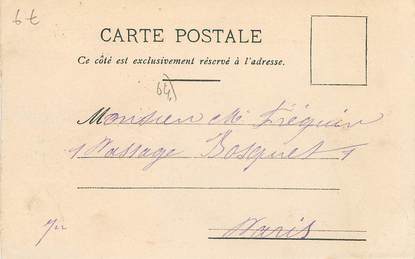 6€
CARTE POSTALE
Ce côté est exclusivement réservé à l'adresse.
64)
Monsieur
1 Passage Bosquet 1
Paris